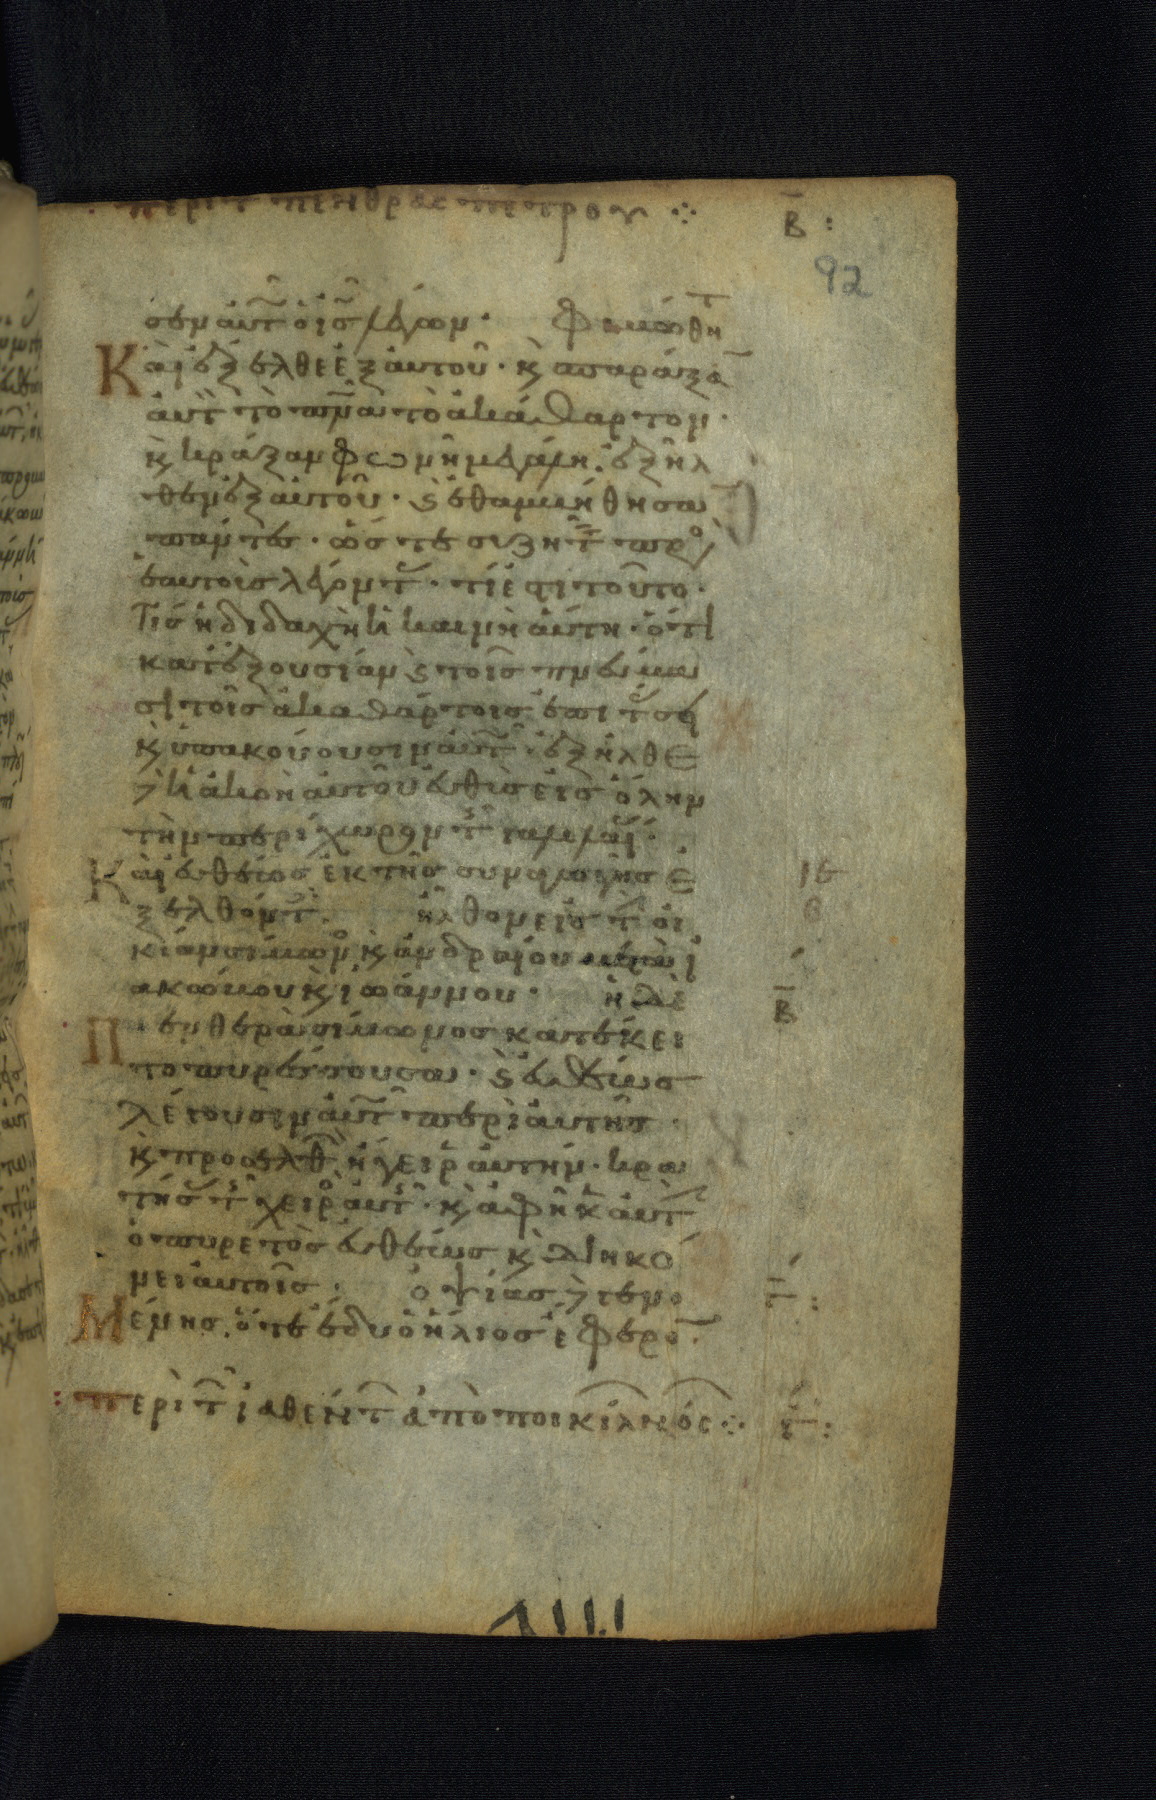 περὶ τ πενθερας πετρου ⁘ β̅ :
92
σεν αυτ ὁ ις λέγων · φιμώθητ
Καὶ ἔξελθε ἐξ αυτοῦ · κ̀ σπαράξα
αυτ̀ τὸ πν̅α τὸ ἀκάθαρτον ·
κ̀ κράξαν φωνῆ μεγάλη · ἐξῆλ
θεν ἐξ αυτοῦ · κ̀ ἐθαμβήθησα
πάντες · ὥστε συζητ προς
ἑαυτοὺς λέγοντ · τί ἐστι τοῦτο ·
Τίς ἡ διδαχὴ ἡ καινὴ ἁύτη · ὅτι
κατ ἐξουσίαν κ̀ τοῖς πνεύμα
σι τοῖς ἀκαθάρτοις ἐπιτάσσει
κ̀ ὑπακούουσιν αυτ · ἐξῆλθε
δὲ ἡ ἀκοὴ αυτοῦ ἐυθὺς εἰς ὅλην
τὴν περίχωρον τ γαλιλαί ·
Καὶ ἐυθέως ἐκ τῆς συναγωγῆς ἐ
ξελθόντ ἦλθον εἰς τ οἰ
κίαν σίμωνο κ̀ ἀνδρέου μετὰ ἰ
ακώβου κ̀ ἰωάννου · ἡ δὲ β̅
Πενθερὰ σίμωνος κατέκει
το πυρέττουσα · κ̀ ἐυθέως
λέγουσιν αυτ περὶ αυτῆς ·
κ̀ προσελθ ἤγειρ αυτήν · κρα
τήσ τ χειρ αυτ · κ̀ ἀφῆκ αυτ
ὁ πυρετὸς ἐυθέως κ̀ διηκό
νει αυτοῖς · ὀψίας δὲ γενο Γ̅ :
Μένης · ὅτε ἔδυ ὁ ἥλιος ἔφερο
: περὶ τ ἰαθέντ ἀπὸ ποικίλ νός ⁘ Γ̅ :